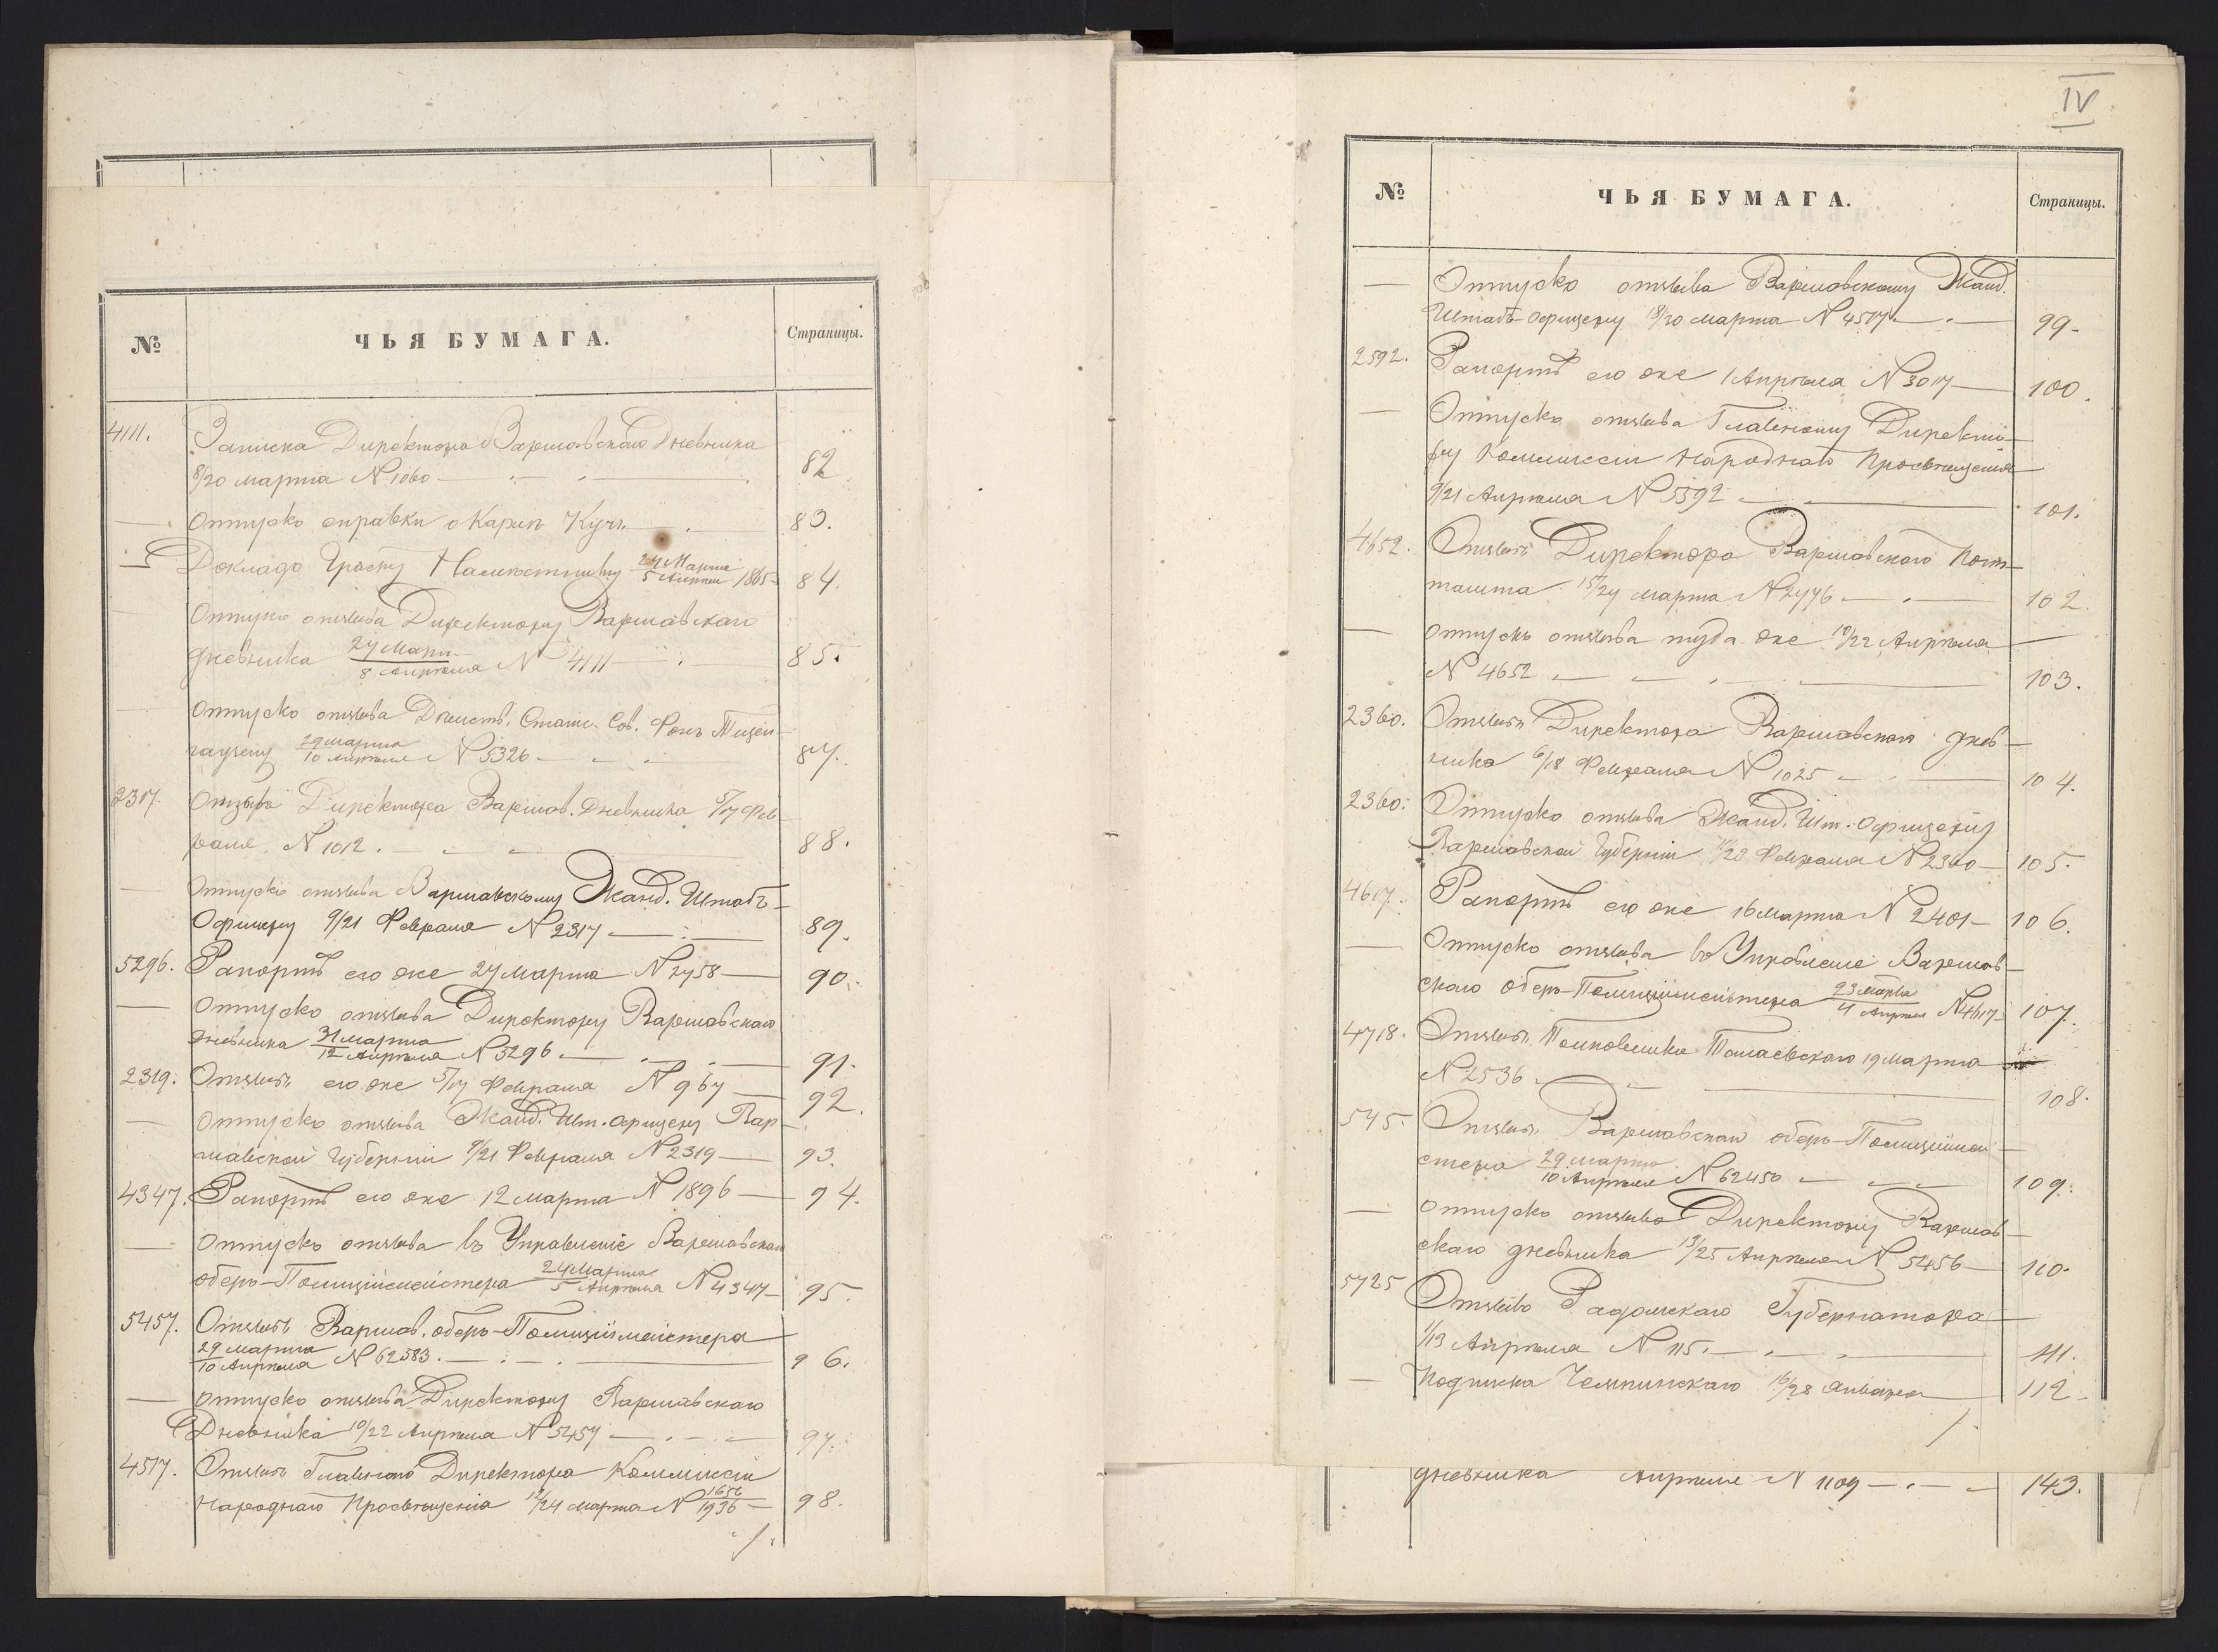 № ЧЬЯ БУМАГА. Страницы.
4111. Записка Директора Варшавскаго Дневника
8/20 марта № 1060 — 82
— Отпускъ справки о Карлѣ 83.
— Докладъ Графу Намѣстнику 24 Марта/5 Апрѣля 1865 84.
— Отпускъ отзыва Директору Варшавскаго
дневника 27 Мар./8 Апрѣля № 4111 — 85.
— Отпускъ отзыва Дѣйств. Статс. Сов. Фонъ Тизен-
гаузену 29 марта/10 Апрѣля № 5326 — 87.
2317. Отзывъ Директора Варшав. Дневника 5/17 Фев-
раля № 1012. — 88.
— Отпускъ отзыва Варшавскому Жанд. Штабъ-
Офицеру 9/21 Февраля № 2317 — 89.
5296. Рапортъ его же 27 марта № 2758 — 90.
— Отпускъ отзыва Директору Варшавскаго
Дневника 31 марта/12 Апрѣля № 5296 — 91.
2319. Отзывъ его же 5/17 Февраля № 967 — 92.
— Отпускъ отзыва Жанд. Шт. офицеру Вар-
шавской Губерніи 9/21 Февраля № 2319 — 93.
4347. Рапортъ его же 12 марта № 1896 — 94.
— Отпускъ отзыва въ Управленіе Варшавскаго
оберъ-Полиціймейстера 24 Марта/5 Апрѣля № 4347 — 95.
5457. Отзывъ Варшав. оберъ-Полиціймейстера
29 марта/10 Апрѣля № 62583. — 96.
— Отпускъ отзыва Директору Варшавскаго
Дневника 10/22 Апрѣля № 5457 — 97.
4517. Отзывъ Главнаго Директора Коммиссіи
Народнаго Просвѣщенія 12/24 марта № 1656/1936 — 98.
IV
№ ЧЬЯ БУМАГА. Страницы.
— Отпускъ отзыва Варшавскому Жанд.
Штабъ-офицеру 18/30 марта № 4517 — 99.
2592. Рапортъ его же 1 Апрѣля № 3017 — 100.
— Отпускъ отзыва Главному Директо-
ру Коммиссіи Народнаго Просвѣщенія
9/21 Апрѣля № 5592 — 101.
4652. Отзывъ Директора Варшавскаго Почт-
тамта 15/27 марта № 2776 — 102.
— Отпускъ отзыва туда же 10/22 Апрѣля —
№ 4652 — 103.
2360. Отзывъ Директора Варшавскаго днев-
ника 6/18 Февраля № 1025 — 104.
2360. Отпускъ отзыва Жанд. Шт. Офицеру
Варшавской Губерніи 11/23 Февраля № 2360 — 105.
4617. Рапортъ его же 16 марта № 2401 — 106.
— Отпускъ отзыва въ Управленіе Варшав-
скаго оберъ-Полиціймейстера 23 Марта/4 Апрѣля № 4617 — 107.
4718. Отзывъ Полковника 19 марта
№ 2536 — 108.
545. Отзывъ Варшавскаго оберъ-Полиціймей-
стера 29 марта/10 Апрѣля № 62450 — 109.
— Отпускъ отзыва Директору Варшав-
скаго дневника 13/25 Апрѣля № 5456 — 110.
5725 Отзывъ Радомскаго Губернатора
1/13 Апрѣля № 115. — 111.
— Подписка 16/28 Января — 112.
дневника Апрѣля № 1109 — 143.